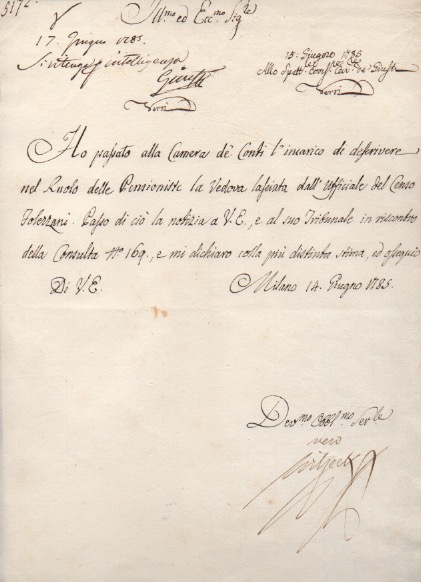 Ill.mo ed Ecc.mo Sig.re
17. Giugno 1785.
Si ritenga p intelligenza
Giusti
Verri
15. Giugno 1785
Allo Spett. Cons.re Cav.re de' Giusti
Verri
Ho passato alla Camera de' Conti l'incarico di descrivere
nel Ruolo delle Pensioniste la Vedova lasciata dall'Uffiziale del Censo
Passo di ciò la notizia a V.E., e al suo Tribunale in riscontro
della Consulta N.° 169., e mi dichiaro colla più distinta stima, ed ossequio
Di V.E.
Milano 14. Giugno 1785.
Dev.mo Obbl.mo Ser.re
vero